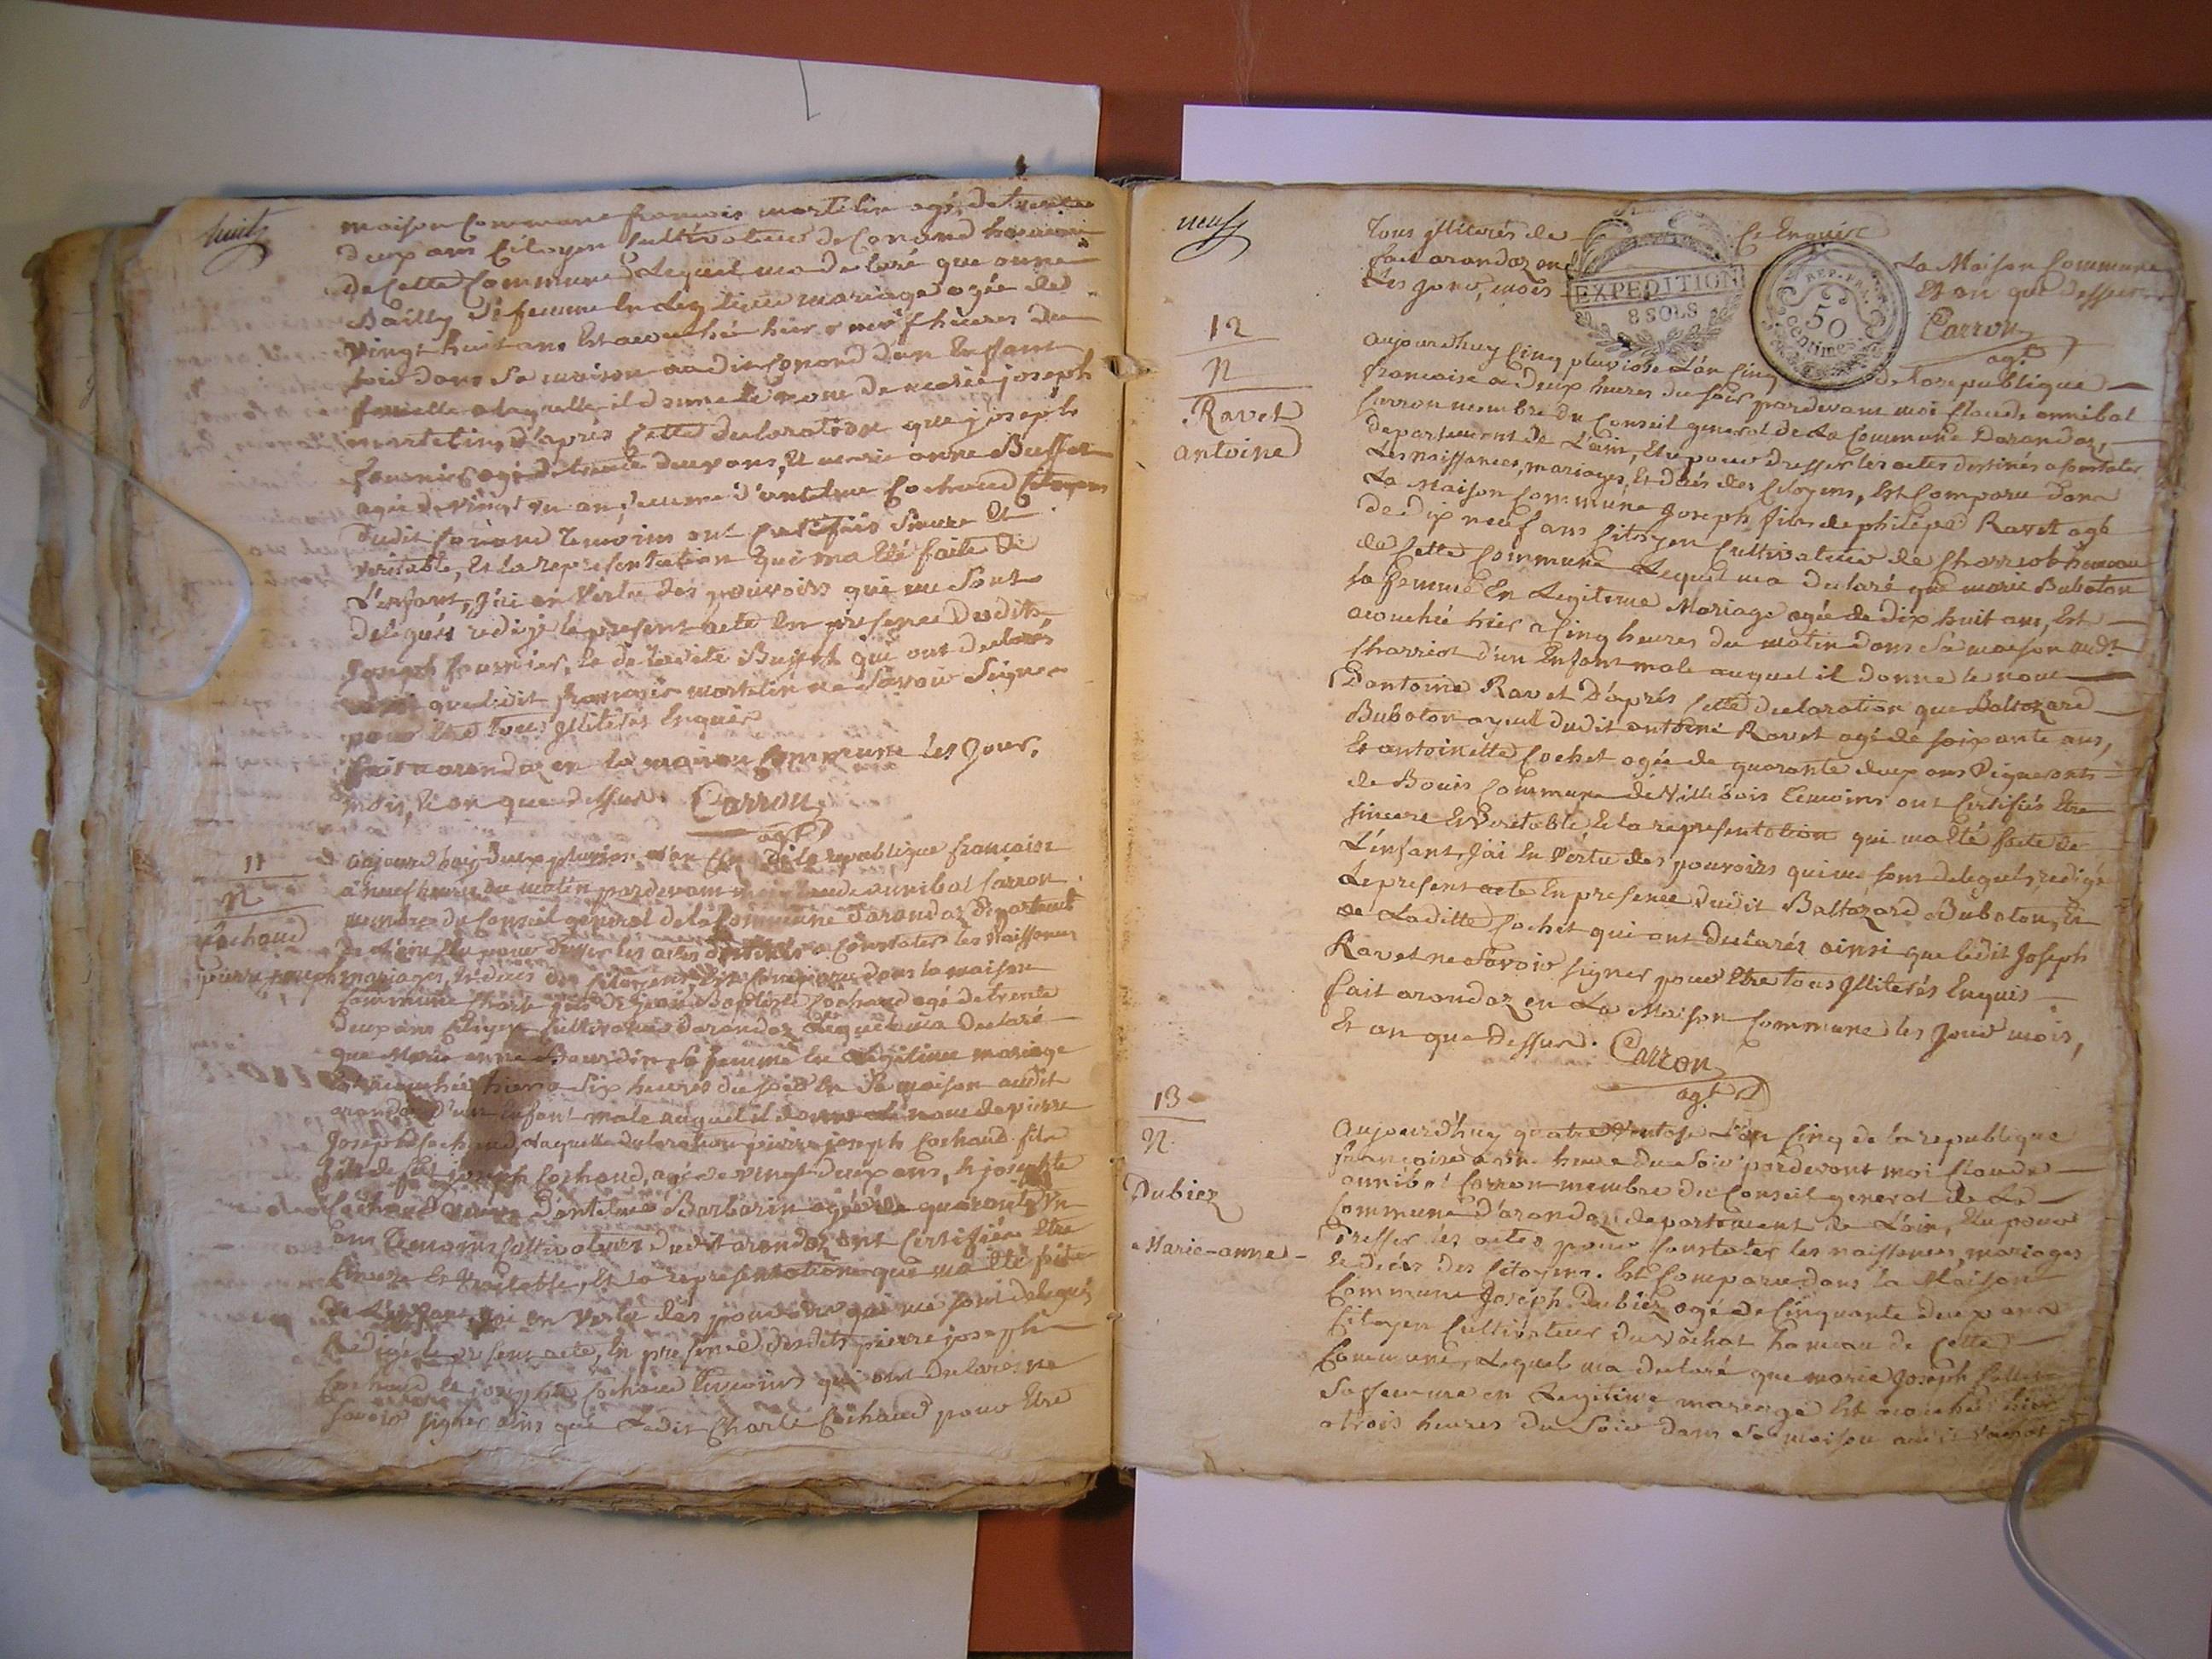 huit
maison Commune francois martelin agé de trente
deux ans Citoyen Cultivateur de Conand hameau
de Cette Commune Lequel ma declaré que anne
Bailly Sa femme En Legitime mariage agée de
vingt huit ans Est acouchée hier a neuf heures du
soir dans Sa maison audit Conand d'un Enfant
femelle a laquelle il donne le nom de marie joseph
martelin, d'après Cette declaration que joseph
fournier agé de trente deux ans, Et marie anne Buffet
agée de vingt un an, femme d'antelme Cochaud Citoyens
dudit Conand temoins ont Certifiés Sincere Et
veritable, Et la representation qui ma Eté faite de
L'enfant, J'ai en Vertu des pouvoirs qui me Sont
delegués redigé le present acte En presence dudit
Joseph fournier, Et de Ladite Buffet qui ont declarés
ainsi que ledit francois martelin ne Savoir Signer
pour Etre tous Jlliterés Enquis
fait a arandaz en la maison Commune les Jour,
mois, Et an que dessus. Carron
agt
11
N
Cochaud
pierre joseph
aujourd'huy deux pluviose L'an Cinq de la republique francaise
a neuf heures du matin pardevant moi Claude annibal Carron
membre du Conseil general de la Commune d'arandaz departement
de L'ain, Elu pour dresser les actes destinés a Constater les Naissances
mariages, Et décès des Citoyens, Est Comparu dans la maison
Commune Charle fils de Jean Baptiste Cochaud agé de trente
deux ans Citoyen Cultivateur darandaz Lequel ma declaré
que Marie anne Bourdin Sa femme En Legitime mariage
Est acouchée hier a Six heures du soir En Sa maison audit
arandaz d'un Enfant male auquel il donne le nom de pierre
Joseph Cochaud, a laquelle declaration pierre joseph Cochaud fils
fils de feu joseph Cochaud, agé de vingt deux ans, Et josephte
Cochaud veuve d'antelme Barbarin agée de quarante un
ans temoins Cultivateurs dudit arandaz ont Certifiés Etre
Sincere Et Veritable, Et la representation qui ma Eté faite
de L'enfant, jai en Vertu des pouvoirs qui me sont delegués
Redigé le present acte, En presence desdits pierre joseph
Cochaud Et josephte Cochaud temoins qui ont declarés ne
Savoir signer ainsi que Ledit Charle Cochaud pour Etre
neuf
tous jlliterés de Ce Enquise
fait arandaz en La Maison Commune
Les jour, mois Et an que dessus
EXPEDITION
8 SOLS
REP. FRA.
50
centimes
Carron
agt
12
N
Ravet
antoine
aujourdhuy Cinq pluviose L'an Cinq de la republique
francaise a deux heures du soir pardevant moi Claude annibal
Carron membre du Conseil general de La Commune Darandaz,
departement de L'ain, Elu pour dresser les actes destinés a constater
Les naissances, mariages, Et décés des Citoyens, Est Comparu dans
La Maison Commune Joseph fils de philipe Ravet agé
de dix neuf ans Citoyen Cultivateur de Charriot hameau
de Cette Commune Lequel ma declaré que marie Buboton
sa femme En Legitime Mariage agée de dix huit ans, Est
acouchée hier a Cinq heures du matin dans Sa maison audt
Charriot d'un Enfant male auquel il donne le nom
Dantoine Ravet D'aprés Cette declaration que Baltazard
Buboton ayeul dudit antoine Ravet agé de soixante ans,
Et antoinette Cochet agée de quarante deux ans Vignerons
de Bouis Commune de Villebois temoins ont Certifiés Etre
sincere Et Veritable, Et la representation qui ma Eté faite de
L'enfant, J'ai En Vertu des pouvoirs qui me sont delegués, redigé
Le present acte En presence dudit Baltazard Buboton, Et
de Laditte Cochet qui ont declarés ainsi que ledit Joseph
Ravet ne Savoir signer pour Etre tous Jlliterés Enquis
fait arandaz en La Maison Commune les Jour mois,
Et an que dessus. Carron
agt
13
N
Dubiez
Marie-anne
Aujourd'huy quatre Ventose L'an Cinq de la republique
francaise a une heure du Soir pardevant moi Claude
annibal Carron membre du Conseil general de La
Commune d'arandaz departement de L'ain, Elu pour
Dresser les actes pour Constater les naissances, mariages
Et décés des Citoyens. Est Comparu dans la Maison
Commune Joseph Dubiez agé de Cinquante deux ans
Citoyen Cultivateur du vachat hameau de Cette
Commune, Lequel ma declaré que marie Joseph
Sa femme en Legitime mariage Est acouchée hier
a trois heures du Soir dans Sa maison audit vachat